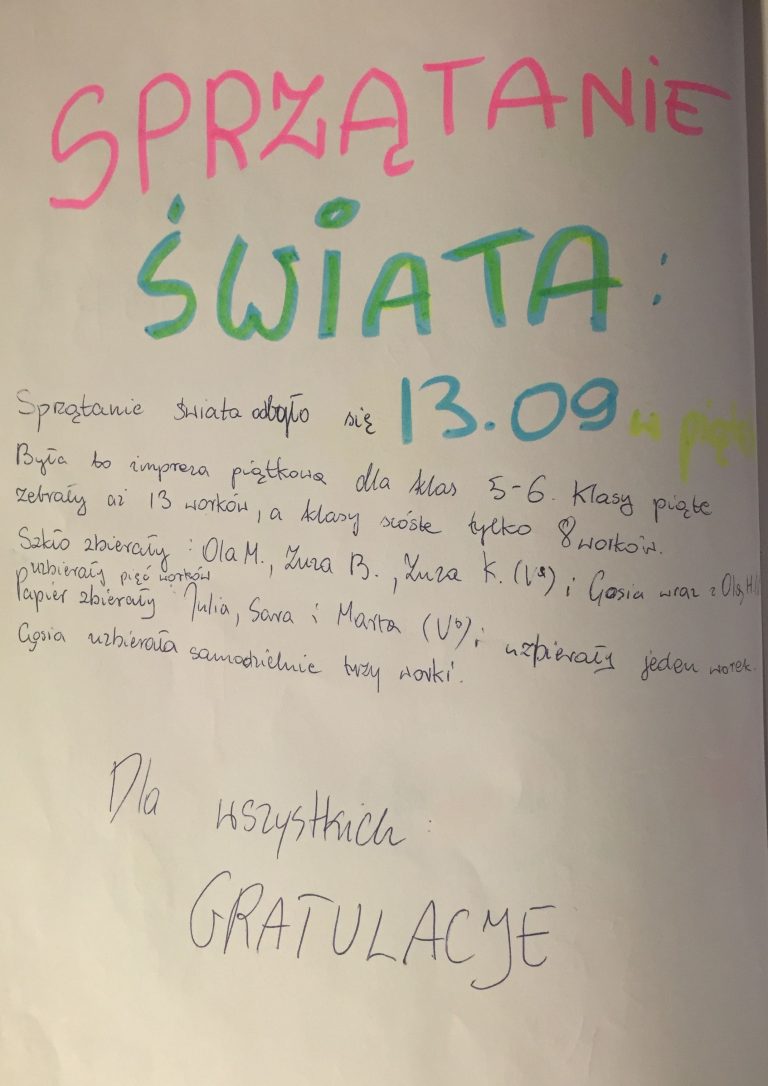 SPRZĄTANIE
ŚWIATA:
Sprzątanie świata odbyło się 13.09 w
Była to impreza piątkowa dla klas 5-6. Klasy piąte
zebrały aż 13 worków, a klasy szóste tylko 8 worków.
Szkło zbierały: Ola M., Zuza B., Zuza K. (Va) i Gosia wraz z Olą H.
uzbierały pięć worków
Papier zbierały Julia, Sara i Marta (Vb); uzbierały jeden worek.
Gosia uzbierała samodzielnie trzy worki.
Dla wszystkich:
GRATULACJE